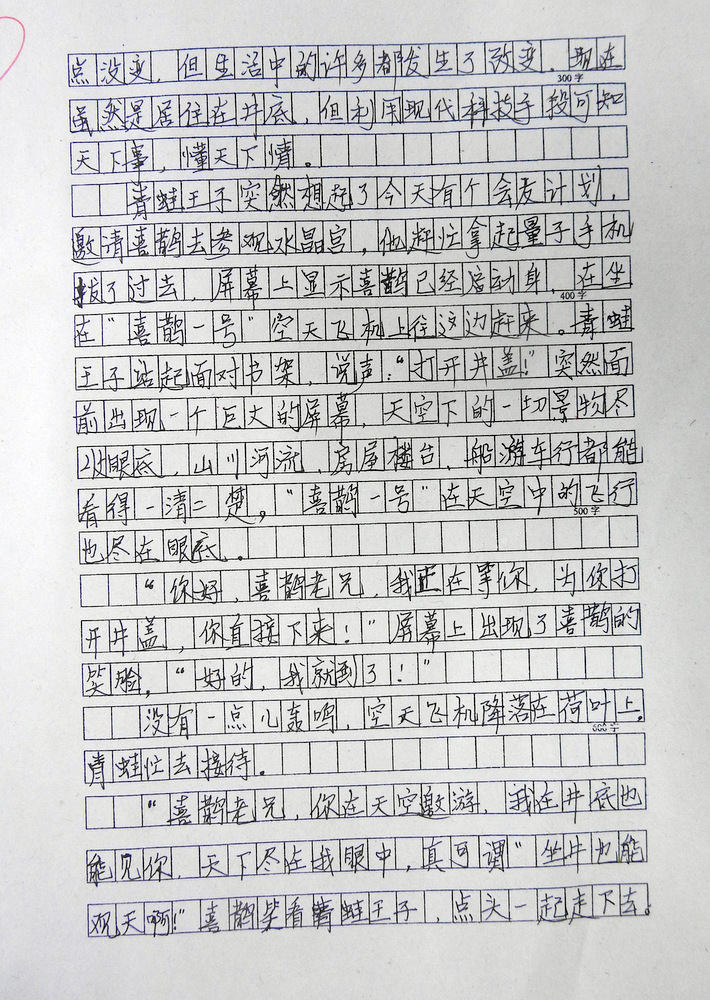 点没变，但生活中的许多都发生了改变．现在
300字
虽然是居住在井底，但利用现代科技手段可知
天下事，懂天下情。
青蛙王子突然想起了今天有个会友计划，
邀请喜鹊去参观水晶宫，他赶忙拿起量子手机
拨了过去，屏幕上显示喜鹊已经启动身．在坐
400字
在“喜鹊一号”空天飞机上往这边赶来。青蛙
王子站起面对书架，说声：“打开井盖！”突然面
前出现一个巨大的屏幕，天空下的一切景物尽
收眼底，山川河流，房屋楼台，船游车行都能
看得一清二楚。“喜鹊一号”在天空中的飞行
500字
也尽在眼底。
“你好，喜鹊老兄，我正在等你，为你打
开井盖，你直接下来！”屏幕上出现了喜鹊的
笑脸，“好的，我就到了！”
没有一点儿轰鸣，空天飞机降落在荷叶上。
600字
青蛙忙去接待。
“喜鹊老兄，你在天空遨游，我在井底也
能见你，天下尽在我眼中，真可谓“坐井也能
观天啊！”喜鹊笑看青蛙王子，点头一起走下去。